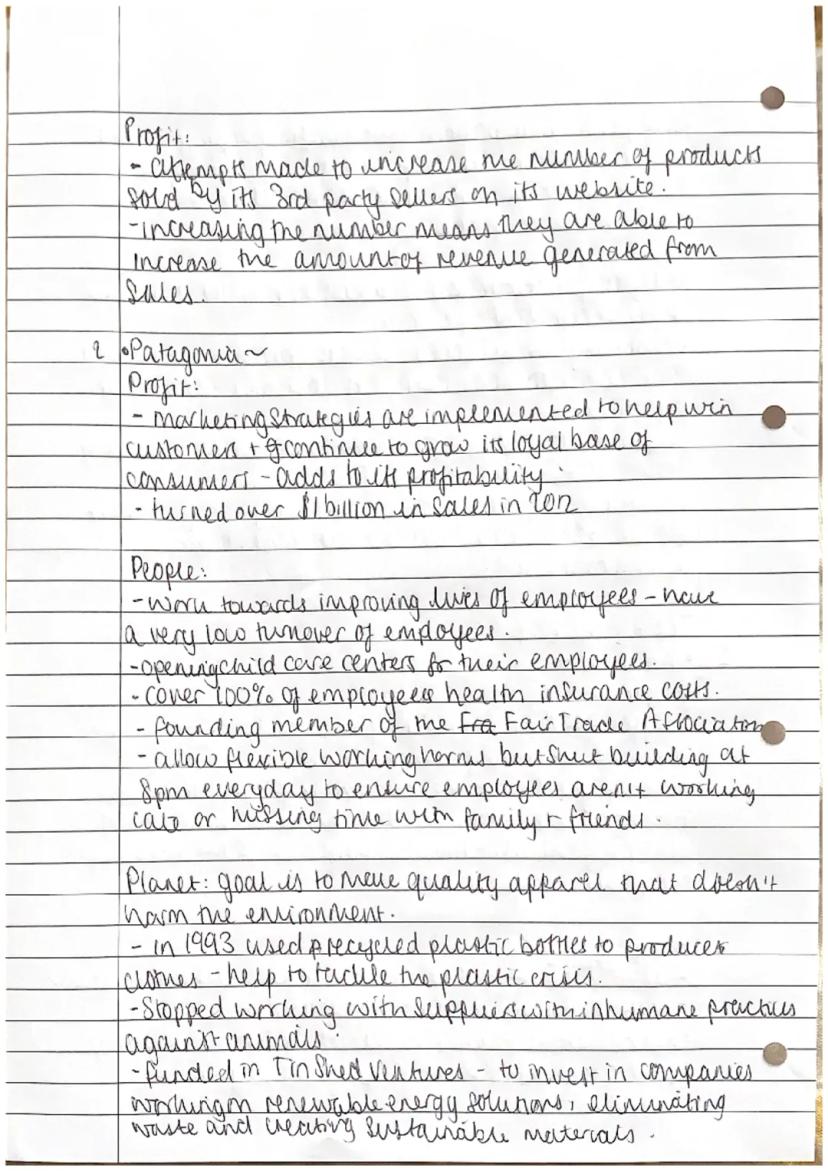 Profit:
- attempts made to increase the number of products
sold by its 3rd party sellers on its website.
- increasing the number means they are able to
increase the amount of revenue generated from
sales.
2 • Patagonia ~
Profit:
- marketing strategies are implemented to help win
customers + continue to grow its loyal base of
consumers - adds to its profitability.
- turned over $1 billion in sales in 2012
People:
- work towards improving lives of employees - have
a very low turnover of employees.
- opening child care centers for their employees.
- cover 100% of employees health insurance costs.
- founding member of the Fra Fair Trade Association
- allow flexible working horus but shut building at
8pm everyday to ensure employees aren't working
late or missing time with family + friends.
Planet: goal is to make quality apparel that doesn't
harm the environment.
- in 1993 used recycled plastic bottles to produce
clothes - help to tackle the plastic crisis.
- Stopped working with suppliers with inhumane practices
against animals.
- funded in Tin Shed Ventures - to invest in companies
working on renewable energy solutions, eliminating
waste and creating sustainable materials.